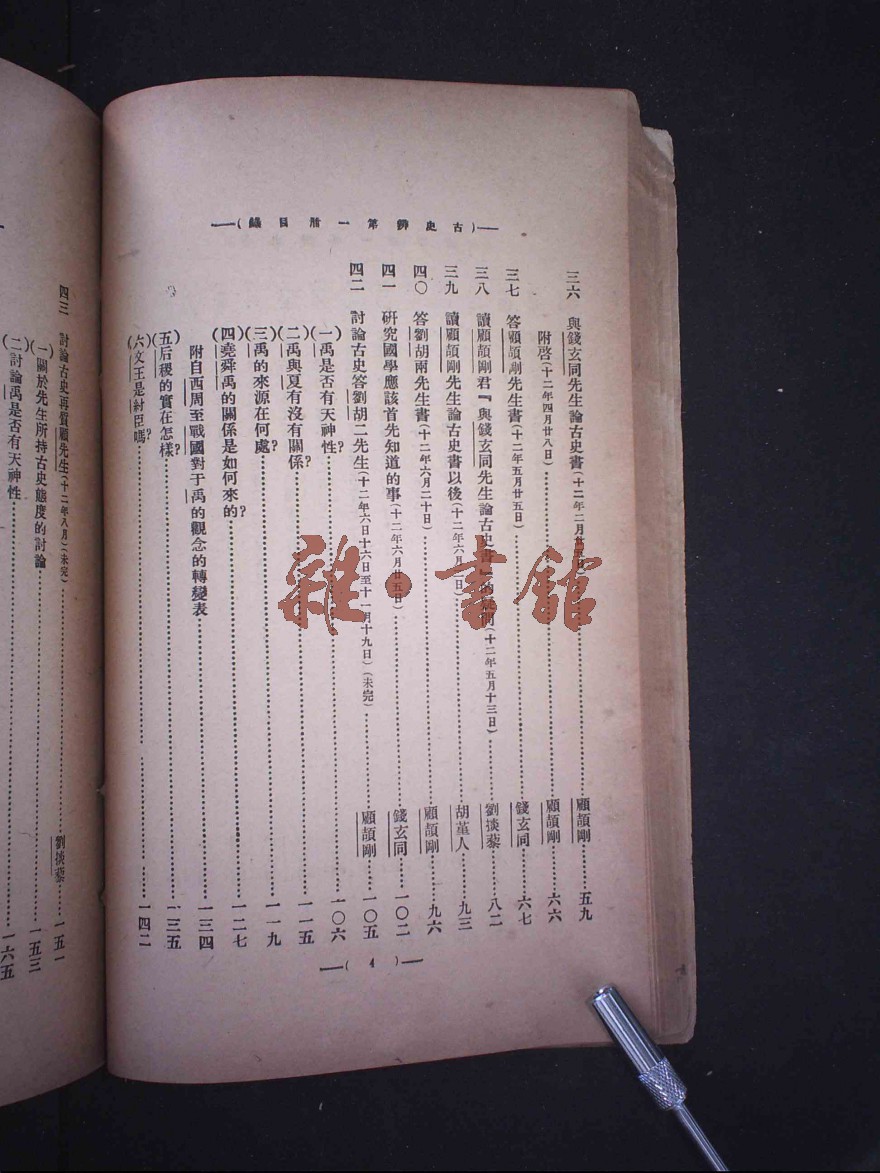 (古史辨第一册目錄)
三六 與錢玄同先生論古史書(十二年二月廿五日)……顧頡剛……五九
附啓(十二年四月廿八日)……顧頡剛……六六
三七 答顧頡剛先生書(十二年五月廿五日)……錢玄同……六七
三八 讀顧頡剛君『與錢玄同先生論古史書』的疑問(十二年五月十三日)……劉掞藜……八二
三九 讀顧頡剛先生論古史書以後(十二年六月 日)……胡堇人……九三
四〇 答劉胡兩先生書(十二年六月二十日)……顧頡剛……九六
四一 研究國學應該首先知道的事(十二年六月廿五日)……錢玄同……一〇二
四二 討論古史答劉胡二先生(十二年六日十六日至十一月十九日)(未完)……顧頡剛……一〇五
(一)禹是否有天神性?……一〇六
(二)禹與夏有沒有關係?……一一五
(三)禹的來源在何處?……一一九
(四)堯舜禹的關係是如何來的?……一二七
附自西周至戰國對于禹的觀念的轉變表……一三四
(五)后稷的實在怎樣?……一三五
(六)文王是紂臣嗎?……一四二
(4)
四三 討論古史再質顧先生(十二年八月)(未完)……劉掞藜……一五一
(一)關於先生所持古史態度的討論……一五三
(二)討論禹是否有天神性……一六五
雜·書館